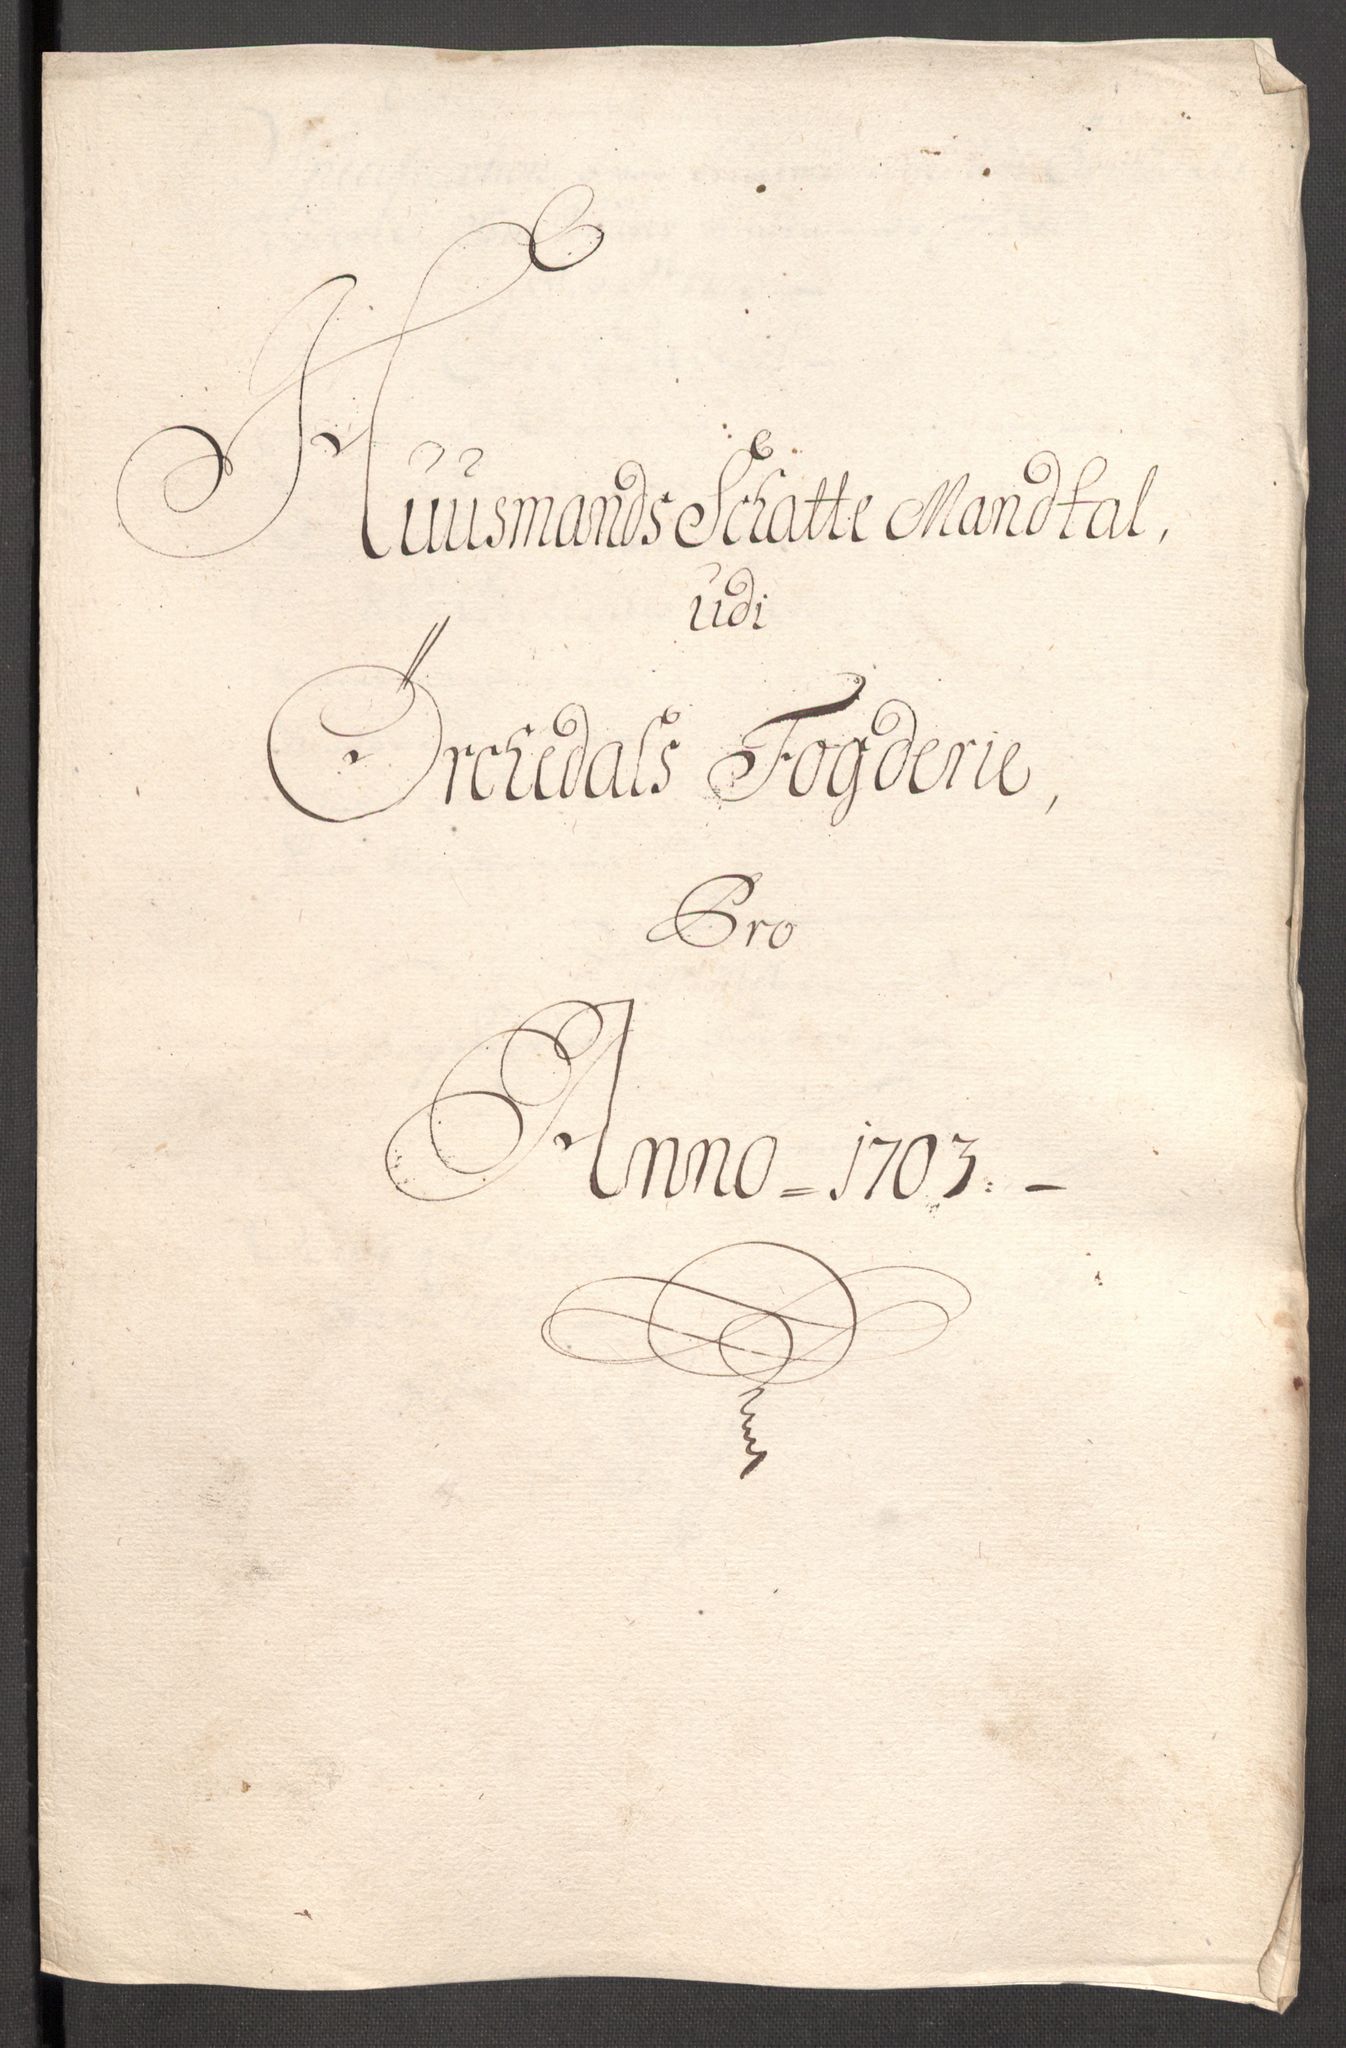 Huusmands Schatte Mandtal,
udi
Örchedals Fogderie,
Pro
Anno = 1703. -